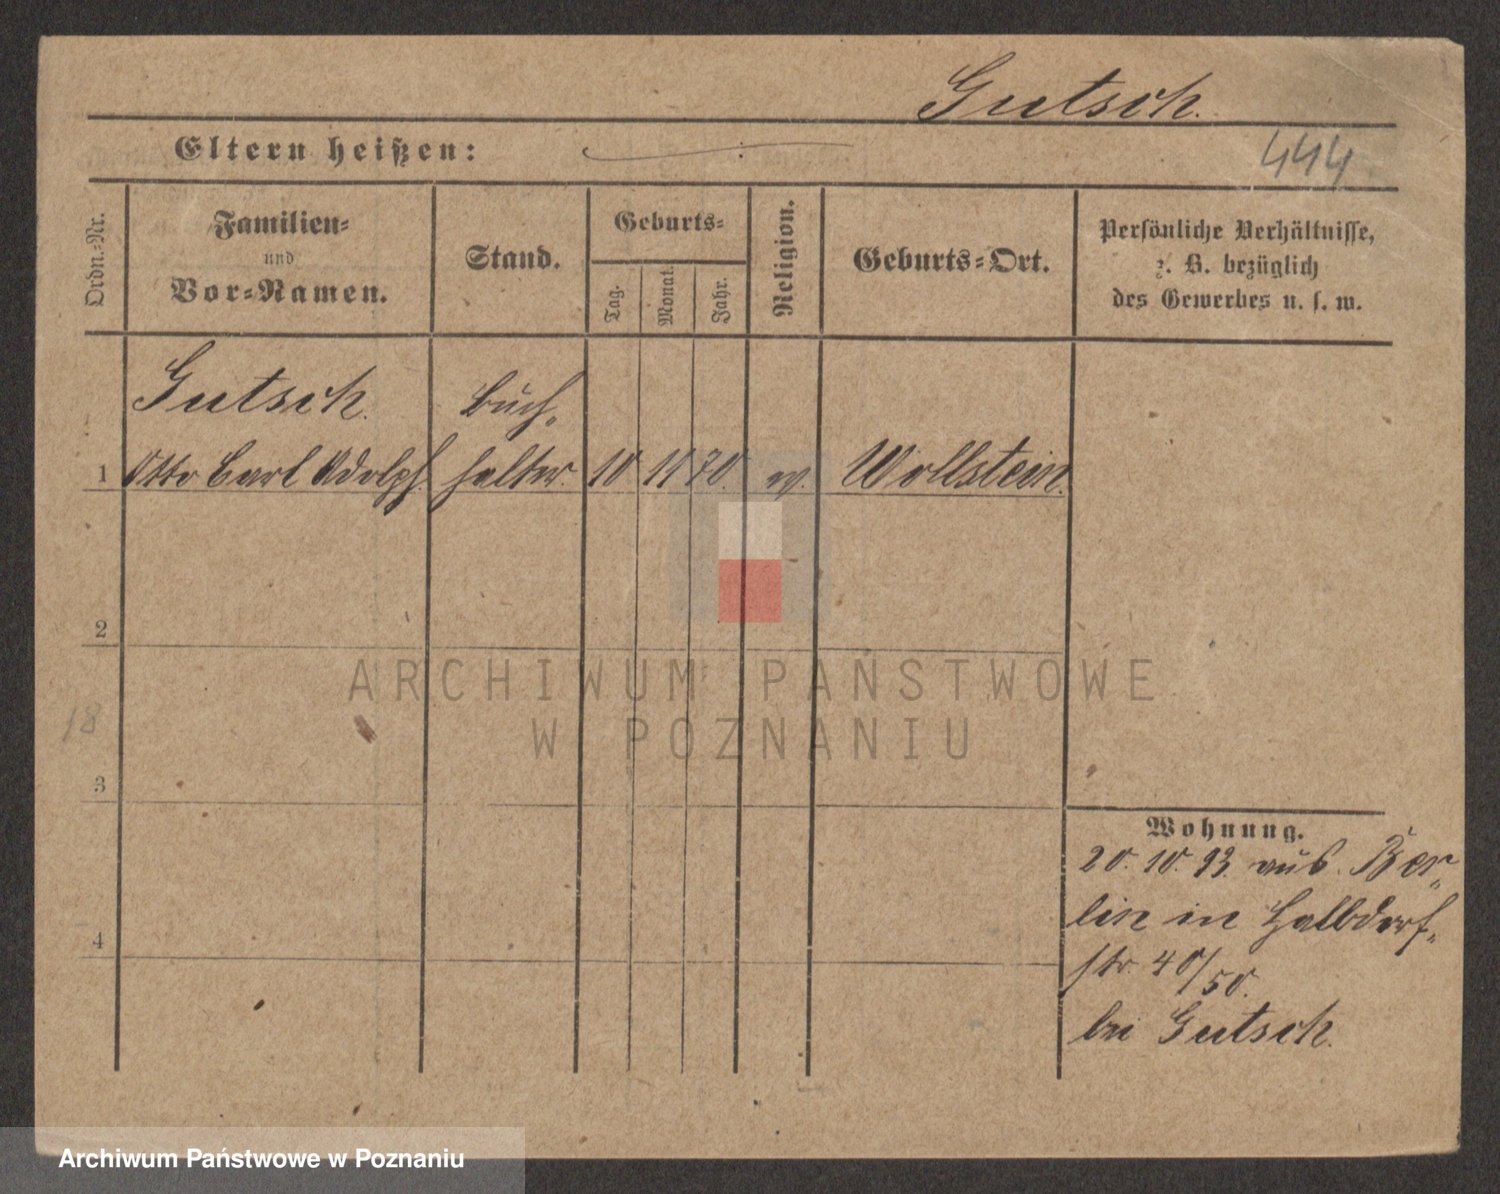 Gutsch.
Eltern heißen:
444
Ordn.-Nr.
Familien-
und
Vor-Namen.
Stand.
Geburts-
Tag.
Monat.
Jahr.
Religion.
Geburts-Ort.
Persönliche Verhältnisse,
z. B. bezüglich
des Gewerbes u. s. w.
Gutsch.
Buch-
1 Otto Carl Adolph halter. 10 11 70 ev. Wollstein.
2
ARCHIWUM PAŃSTWOWE
W POZNANIU
18
3
Wohnung.
20. 10. 93. aus Ber-
lin in Halbdorf-
4
str. 40/50.
bei Gutsch.
Archiwum Państwowe w Poznaniu